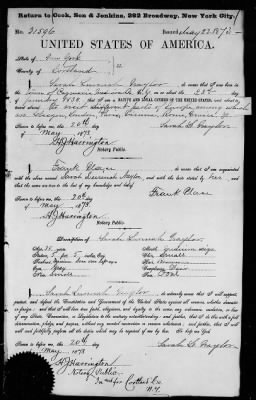 Return to Cook, Son & Jenkins, 262 Broadway, New York City.
No. 31596 Issued May 22 1873
UNITED STATES OF AMERICA.
State of New York
County of Cortland ss.
I, Sarah Lucinah Graylor, do swear that I was born in the
1838, that I am a NATIVE AND LOYAL CITIZEN OF THE UNITED STATES, and about to travel
Glasgow, London, Paris, Vienna, Rome,
Sworn to before me, this 20th day
of May, 1873 Sarah L. Graylor
H J Harrington
Notary Public.
I, Frank Place, do swear that I am acquainted with
the above named Sarah Lucinah and with the facts stated by her, and that
the same are true to the best of my knowledge and belief.
Sworn to before me, this 20th day Frank Place
of May 1873.
H J Harrington
Notary Public.
Description of Sarah Lucinah Graylor
Age, 35 years
Stature, 5 feet 5 inches, Eng.
Eyes, Gray
Nose, Small
Mouth, medium size
Chin, Small
Hair, Brown
Complexion,
Face, Oval
I, Sarah Lucinah Graylor, do solemnly swear that I will support,
protect, and defend the Constitution and Government of the United States against all enemies, whether domestic
or foreign; and that I will bear true faith, allegiance, and loyalty to the same, any ordinance, resolution, or law
of any State, Convention, or Legislature to the contrary notwithstanding; and further, that I do this with a full
determination, pledge, and purpose, without any mental reservation or evasion whatsoever; and further, that I
will well and faithfully perform all the duties which may be required of me by law. So help me God.
Sworn to before me, this 20th day
of May 1873 Sarah L Graylor
H J Harrington
Notary Public
In and for Cortland Co.
N.Y.